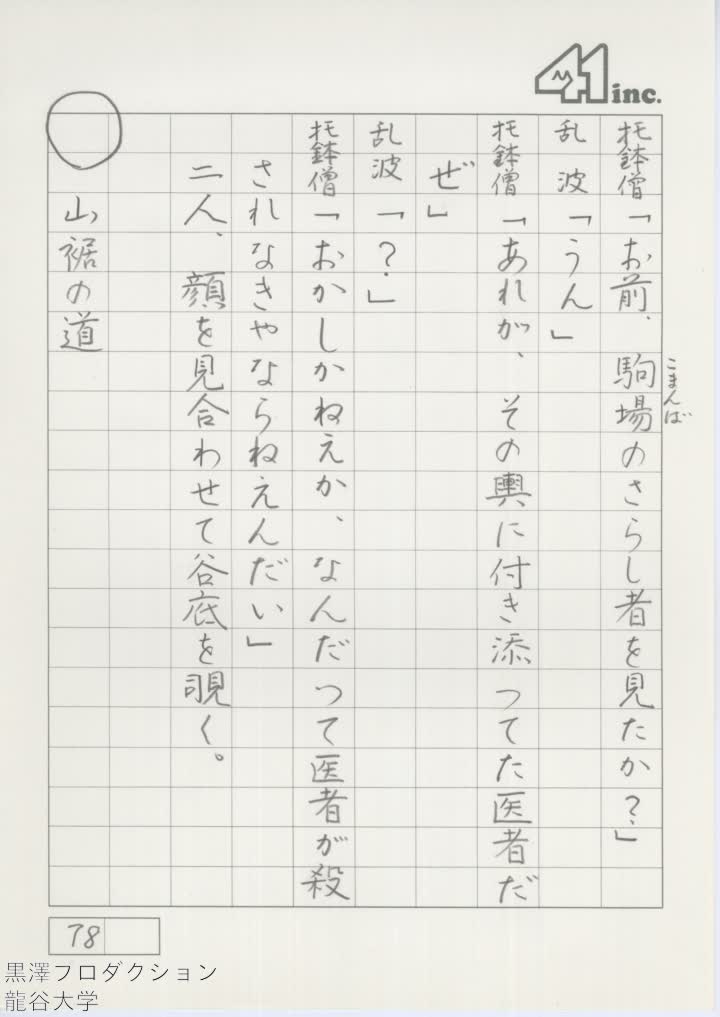 41 inc.
托鉢僧「お前、駒場のさらし者を見たか？」
こまんば
乱波「うん」
托鉢僧「あれが、その輿に付き添つてた医者だ
ぜ」
乱波「？」
托鉢僧「おかしかねえか、なんだつて医者が殺
されなきやならねえんだい」
二人、顔を見合わせて谷底を覗く。
○
山裾の道
78
黒澤プロダクション
龍谷大学